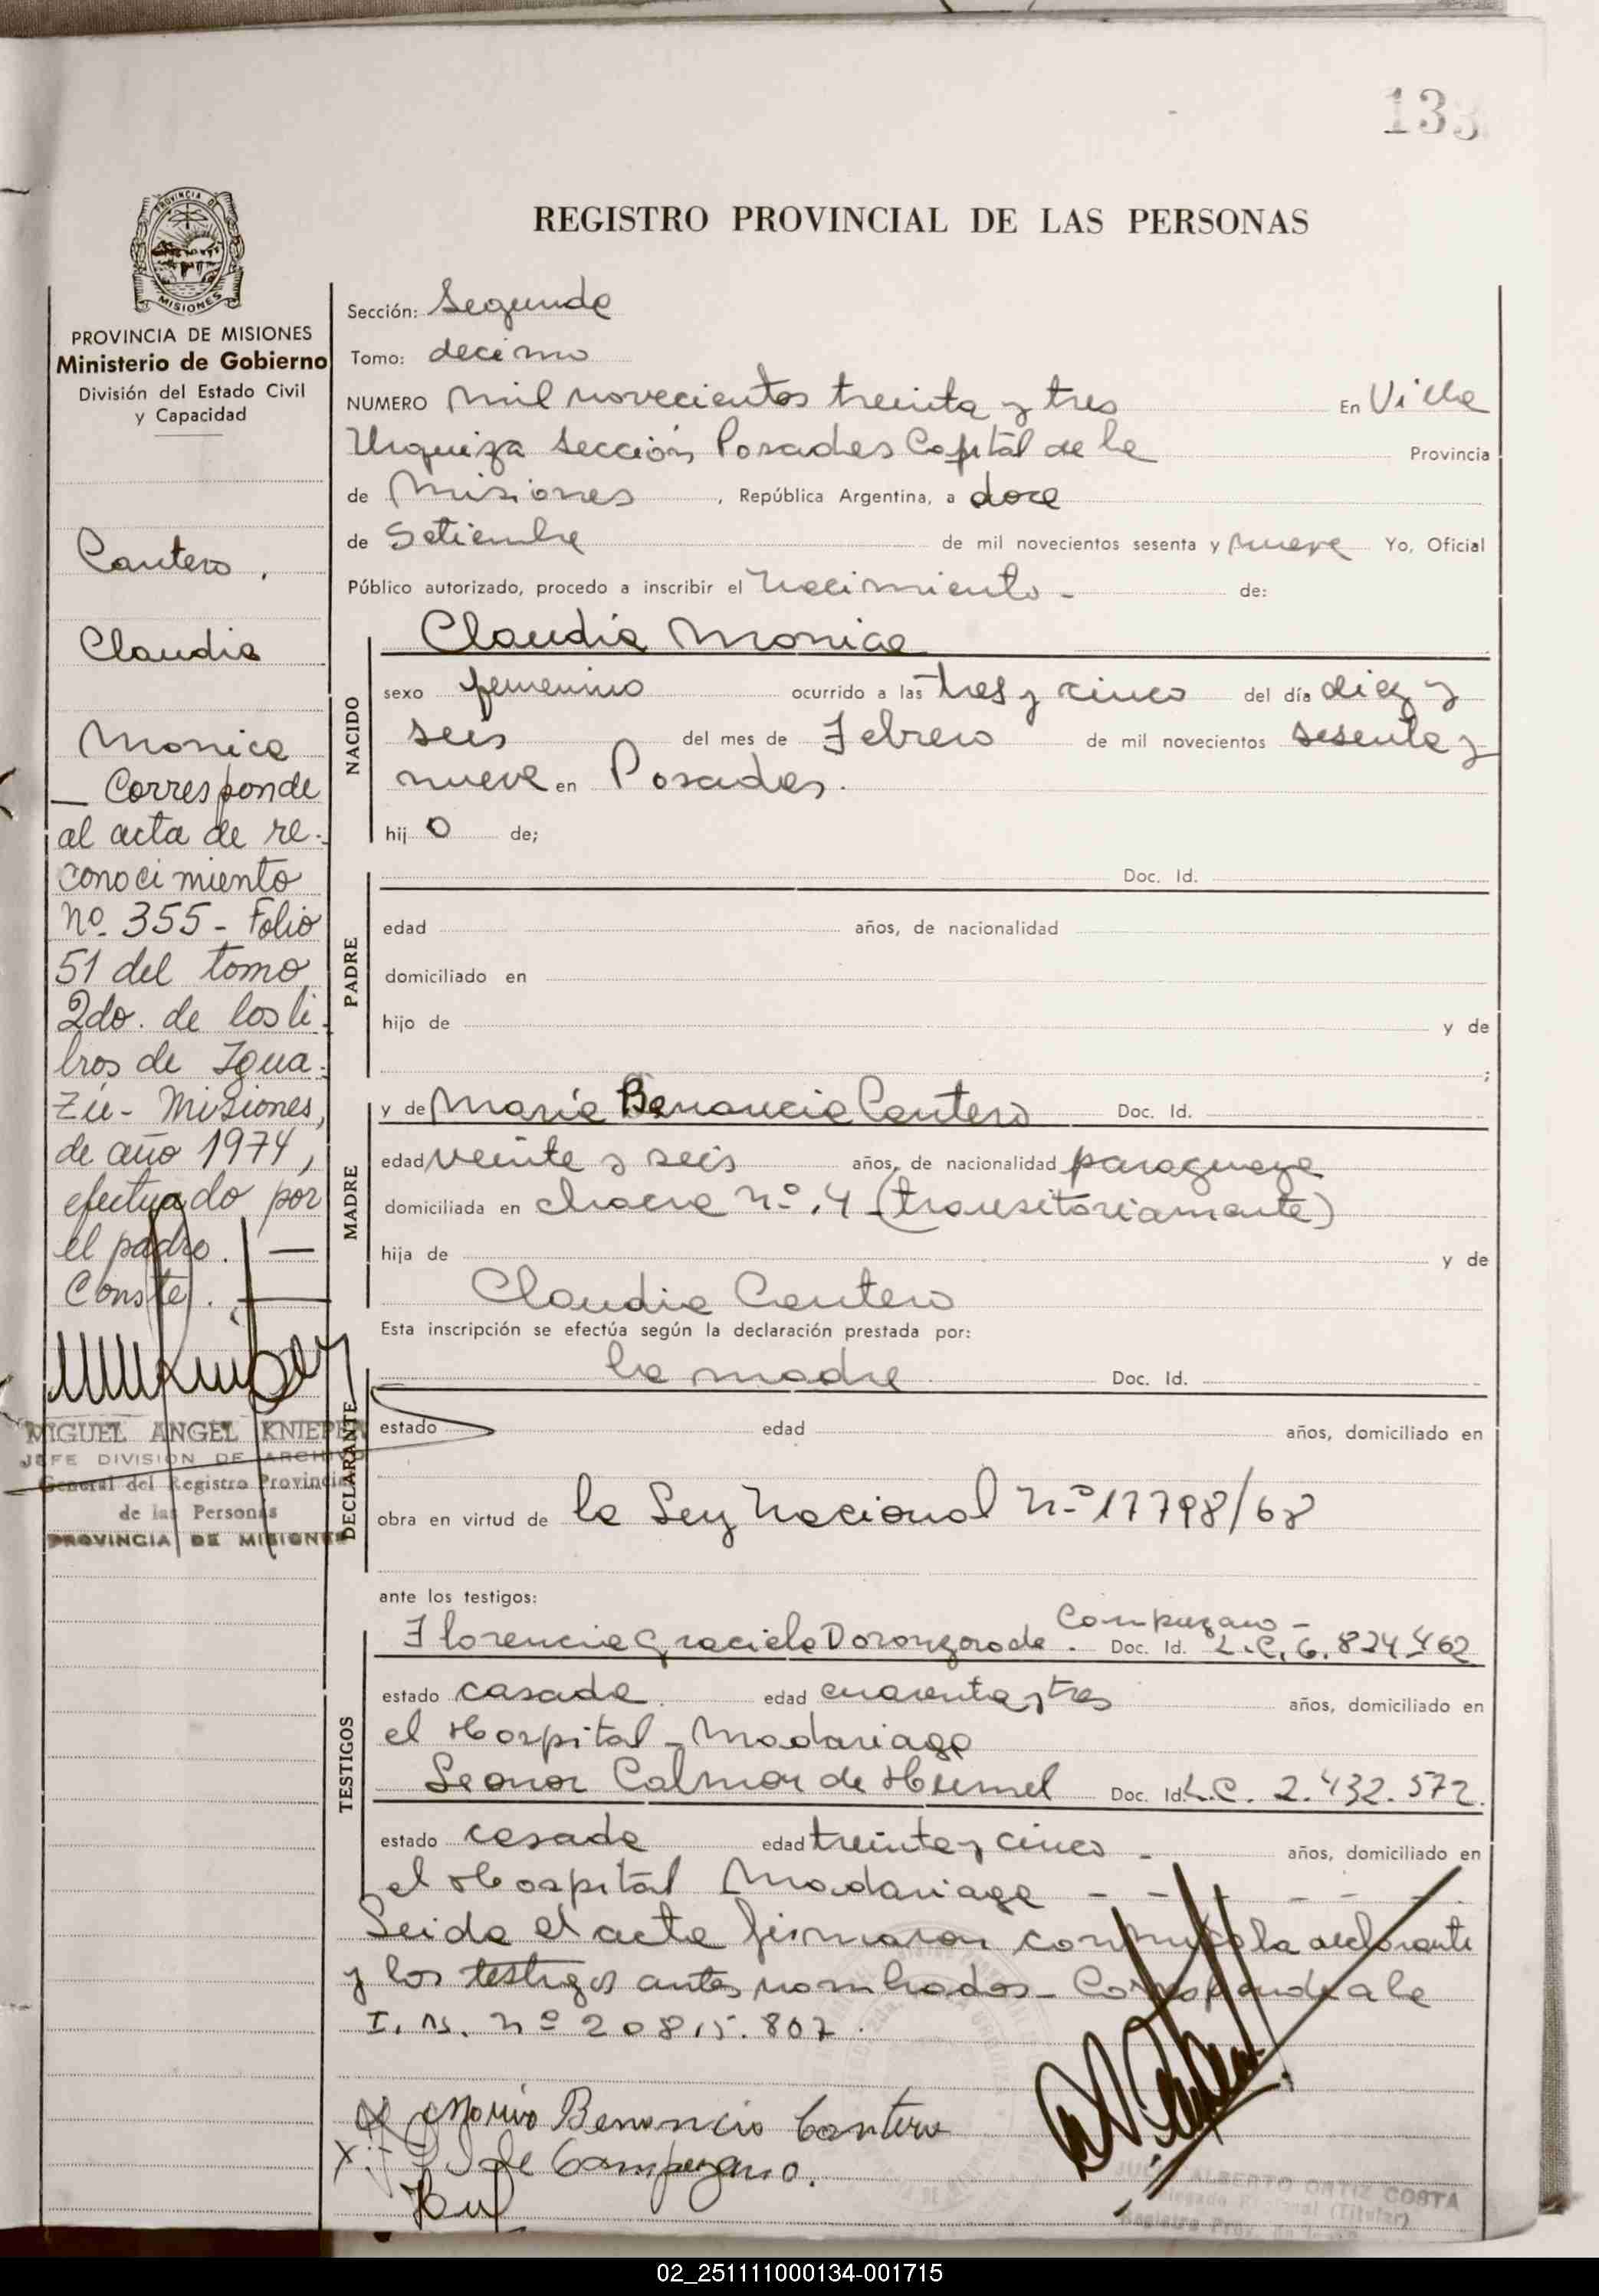 133
PROVINCIA DE
MISIONES
PROVINCIA DE MISIONES
Ministerio de Gobierno
División del Estado Civil
y Capacidad
Cantero,
Claudia
Monica
— Corresponde
al acta de re-
conocimiento
nº 355 - Folio
51 del tomo
2do. de los li-
bros de Igua-
zú - Misiones,
de año 1974,
efectuado por
el padre. —
Conste.
MIGUEL ANGEL KNIEPER
JEFE DIVISION DE ARCHIVO
General del Registro Provincial
de las Personas
PROVINCIA DE MISIONES
REGISTRO PROVINCIAL DE LAS PERSONAS
Sección: Segunda
Tomo: decimo
NUMERO Mil novecientos treinta y tres En Villa
Urquiza Sección Posadas Capital de la Provincia
de Misiones, República Argentina, a doce
de Setiembre de mil novecientos sesenta y nueve Yo, Oficial
Público autorizado, procedo a inscribir el nacimiento - de:
NACIDO
Claudia Monica
sexo femenino ocurrido a las tres y cinco del día diez y
seis del mes de Febrero de mil novecientos sesenta y
nueve en Posadas.
hij o de;
PADRE
Doc. Id.
edad años, de nacionalidad
domiciliado en
hijo de y de
;
MADRE
y de Maria Benancia Cantero Doc. Id.
edad veinte y seis años, de nacionalidad paraguaya
domiciliada en chacra nº. 4 (transitoriamente)
hija de y de
Claudia Cantero
Esta inscripción se efectúa según la declaración prestada por:
DECLARANTE
la madre Doc. Id.
estado edad años, domiciliado en
obra en virtud de la Ley Nacional Nº 17798/68
ante los testigos:
TESTIGOS
Campuzano -
Florencia Graciela Doronzoro de. Doc. Id. L.C. 6.824.462
estado casada edad cuarenta y tres años, domiciliado en
el Hospital - Madariaga
Leonor Calmor de Humel Doc. Id. L.C. 2.432.572.
estado casada edad treinta y cinco - años, domiciliado en
el Hospital Madariaga - - - - - -
Leida el acta firmaron conmigo la declarante
y los testigos antes nombrados - Corresponde a la
I. N. nº 20815.807.
Maria Benancia Cantero
de Campuzano.
Hul
JULIO ALBERTO ORTIZ COSTA
Delegado Regional (Titular)
02_251111000134-001715